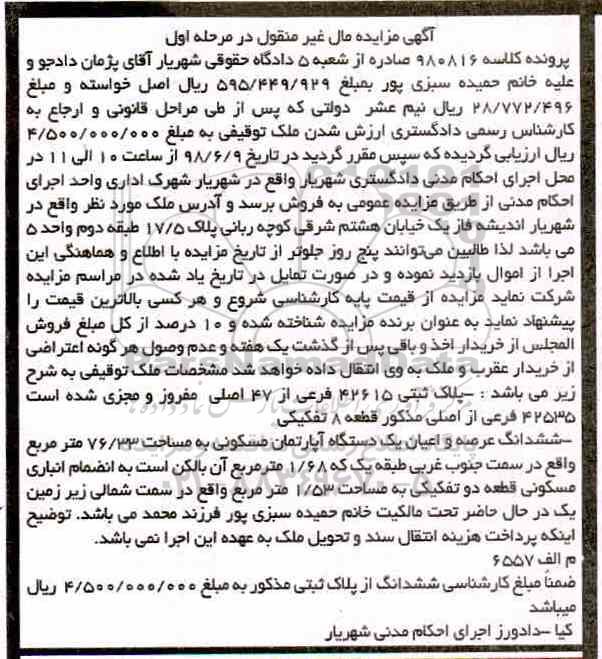 آگهی مزایده مال غیر منقول در مرحله اول
پرونده کلاسه ۹۸۰۸۱۶ صادره از شعبه ۵ دادگاه حقوقی شهریار آقای پژمان دادجو و
علیه خانم حمیده سبزی پور بمبلغ ۵۹۵/۴۴۹/۹۲۹ ریال اصل خواسته و مبلغ
۲۸/۷۷۲/۴۹۶ ریال نیم عشر دولتی که پس از طی مراحل قانونی و ارجاع به
کارشناس رسمی دادگستری ارزش شدن ملک توقیفی به مبلغ ۴/۵۰۰/۰۰۰/۰۰۰
ریال ارزیابی گردیده که سپس مقرر گردید در تاریخ ۹۸/۶/۹ از ساعت ۱۰ الی ۱۱ در
محل اجرای احکام مدنی دادگستری شهریار واقع در شهریار شهرک اداری واحد اجرای
احکام مدنی از طریق مزایده عمومی به فروش برسد و آدرس ملک مورد نظر واقع در
شهریار اندیشه فاز یک خیابان هشتم شرقی کوچه ربانی پلاک ۱۷/۵ طبقه دوم واحد ۵
می باشد لذا طالبین می‌توانند پنج روز جلوتر از تاریخ مزایده با اطلاع و هماهنگی این
اجرا از اموال بازدید نموده و در صورت تمایل در تاریخ یاد شده در مراسم مزایده
شرکت نماید مزایده از قیمت پایه کارشناسی شروع و هر کسی بالاترین قیمت را
پیشنهاد نماید به عنوان برنده مزایده شناخته شده و ۱۰ درصد از کل مبلغ فروش
المجلس از خریدار اخذ و باقی پس از گذشت یک هفته و عدم وصول هر گونه اعتراضی
از خریدار عقرب و ملک به وی انتقال داده خواهد شد مشخصات ملک توقیفی به شرح
زیر می باشد : -پلاک ثبتی ۴۲۶۱۵ فرعی از ۴۷ اصلی مفروز و مجزی شده است
۴۲۵۳۵ فرعی از اصلی مذکور قطعه ۸ تفکیکی
-ششدانگ عرصه و اعیان یک دستگاه آپارتمان مسکونی به مساحت ۷۶/۳۳ متر مربع
واقع در سمت جنوب غربی طبقه یک که ۱/۶۸ مترمربع آن بالکن است به انضمام انباری
مسکونی قطعه دو تفکیکی به مساحت ۱/۵۳ متر مربع واقع در سمت شمالی زیر زمین
یک در حال حاضر تحت مالکیت خانم حمیده سبزی پور فرزند محمد می باشد. توضیح
اینکه پرداخت هزینه انتقال سند و تحویل ملک به عهده این اجرا نمی باشد.
م الف ۶۵۵۷
ضمناً مبلغ کارشناسی ششدانگ از پلاک ثبتی مذکور به مبلغ ۴/۵۰۰/۰۰۰/۰۰۰ ریال
میباشد
کیا -دادورز اجرای احکام مدنی شهریار